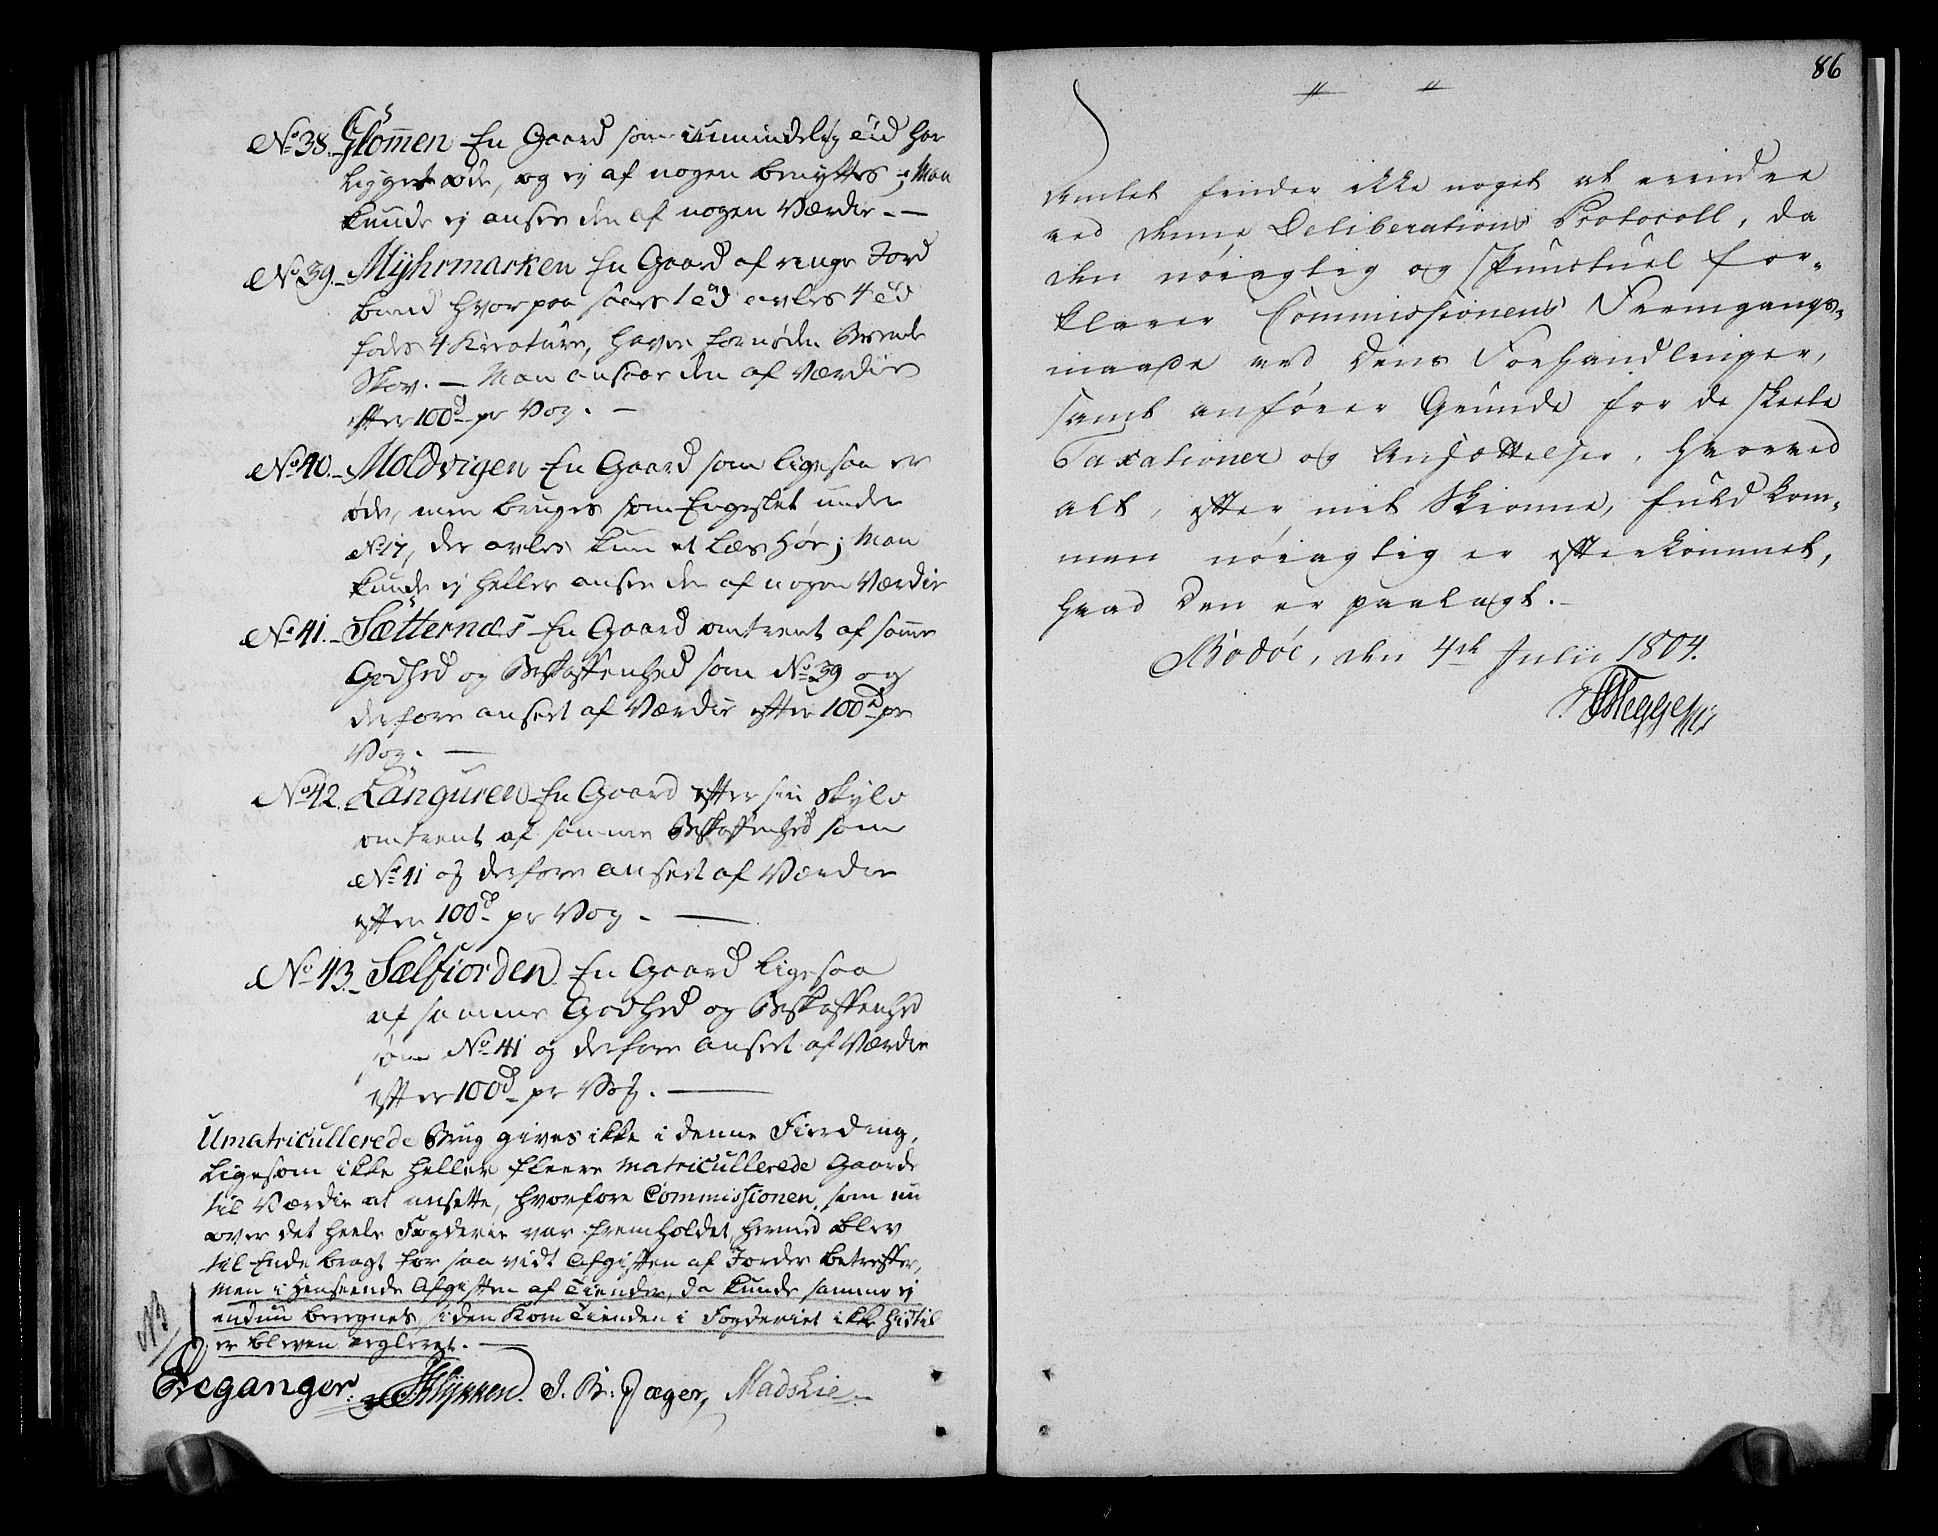 No 38. Glommen En Gaard som i umindelig Tid har
ligget øde, og ej af nogen benyttes; Man
kunde ej ansee den af nogen Værdie. —
No 39. Myhrmarken En Gaard af ringe Jord
bund hvorpaa saaes 1 td avles 4 td
fødes 4 Kreature, haver fornøden Brænde
Skov. — Man ansaae den af Værdie
efter 100d pr Vog. —
No 40. Moldvigen En Gaard som ligesaa er
øde, men bruges som Engeslet under
No 17, der avles kun et Læs Høe; Man
kunde ej heller ansee den af nogen Værdie
No 41. Sætternæs En Gaard omtrent af samme
Godhed og Beskaffenhed som No 39 og
derfore anseet af Værdie efter 100d pr
Vog. —
No 42. Langúren En Gaard efter sin Skyld
omtrent af samme Beskaffenhed som
No 41 og derfore anseet af Værdie
efter 100d pr Vog. —
No 43. Sælfiorden En Gaard ligesaa
af samme Godhed og Beskaffenhed
som No 41 og derfore anseet af Værdie
efter 100d pr Vog. —
Umatricullerede Brug gives ikke i denne Fierding,
ligesom ikke heller fleere matricullerede Gaarde
til Værdie at ansette, hvorfore Commissionen, som nu
over det heele Fogderie var fremholdet, hermed blev
til Ende bragt for saa vidt Afgiften af Jorder betreffer,
men i Henseende Afgiften af Tiender, da kunde samme ej
endnu beregnes, siden Korn Tienden i Fogderiet ikke hidtil
er bleven regleret. —
NB
Greganger. Klykken. J. B. Jæger, Mads Lie.
86
Amtet finder ikke noget at erindre
ved denne Deliberations Protocoll, da
den nøiagtig og Spunctuel for-
klarer Commissionens Fremgangs-
maade ved dens Forhandlinger,
samt anfører Grunde for de skeete
Taxationer og Ansættelser, hvorved
alt, efter mit Skiønne, fuldkom-
men nøiagtig er efterkommet,
hvad den er paalagt. —
Bodöe, den 4de Julii 1804.